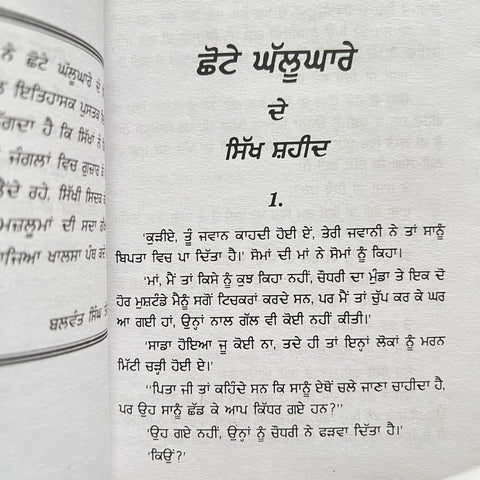 ਨੇ ਛੋਟੇ ਘੱਲੂਘਾਰੇ ਦੇ
ਇਤਿਹਾਸਕ ਪੁਸਤਕ
ਹੈ ਕਿ ਸਿੱਖਾਂ ਨੇ
ਜੰਗਲਾਂ ਵਿਚ ਗੁਜ਼ਾਰ
ਰਹੇ, ਸਿੱਖੀ ਸਿਦਕ
ਮਜ਼ਲੂਮਾਂ ਦੀ ਸਦਾ
ਖਾਲਸਾ ਪੰਥ ਕਦੇ
ਬਲਵੰਤ ਸਿੰਘ
ਛੋਟੇ ਘੱਲੂਘਾਰੇ
ਦੇ
ਸਿੱਖ ਸ਼ਹੀਦ
1.
'ਕੁੜੀਏ, ਤੂੰ ਜਵਾਨ ਕਾਹਦੀ ਹੋਈ ਏਂ, ਤੇਰੀ ਜਵਾਨੀ ਨੇ ਤਾਂ ਸਾਨੂੰ
ਬਿਪਤਾ ਵਿਚ ਪਾ ਦਿੱਤਾ ਹੈ।' ਸੋਮਾਂ ਦੀ ਮਾਂ ਨੇ ਸੋਮਾਂ ਨੂੰ ਕਿਹਾ।
'ਮਾਂ, ਮੈਂ ਤਾਂ ਕਿਸੇ ਨੂੰ ਕੁਝ ਕਿਹਾ ਨਹੀਂ, ਚੌਧਰੀ ਦਾ ਮੁੰਡਾ ਤੇ ਇਕ ਦੋ
ਹੋਰ ਮੁਸ਼ਟੰਡੇ ਮੈਨੂੰ ਸਗੋਂ ਟਿਚਕਰਾਂ ਕਰਦੇ ਸਨ, ਪਰ ਮੈਂ ਤਾਂ ਚੁੱਪ ਕਰ ਕੇ ਘਰ
ਆ ਗਈ ਹਾਂ, ਉਨ੍ਹਾਂ ਨਾਲ ਗੱਲ ਵੀ ਕੋਈ ਨਹੀਂ ਕੀਤੀ।'
'ਸਾਡਾ ਹੋਇਆ ਜੂ ਕੋਈ ਨਾ, ਤਦੇ ਹੀ ਤਾਂ ਇਨ੍ਹਾਂ ਲੋਕਾਂ ਨੂੰ ਮਰਨ
ਮਿੱਟੀ ਚੜ੍ਹੀ ਹੋਈ ਏ।'
''ਪਿਤਾ ਜੀ ਤਾਂ ਕਹਿੰਦੇ ਸਨ ਕਿ ਸਾਨੂੰ ਏਥੋਂ ਚਲੇ ਜਾਣਾ ਚਾਹੀਦਾ ਹੈ,
ਪਰ ਉਹ ਸਾਨੂੰ ਛੱਡ ਕੇ ਆਪ ਕਿੱਧਰ ਗਏ ਹਨ?''
'ਉਹ ਗਏ ਨਹੀਂ, ਉਨ੍ਹਾਂ ਨੂੰ ਚੌਧਰੀ ਨੇ ਫੜਵਾ ਦਿੱਤਾ ਹੈ।'
'ਕਿਉਂ?'